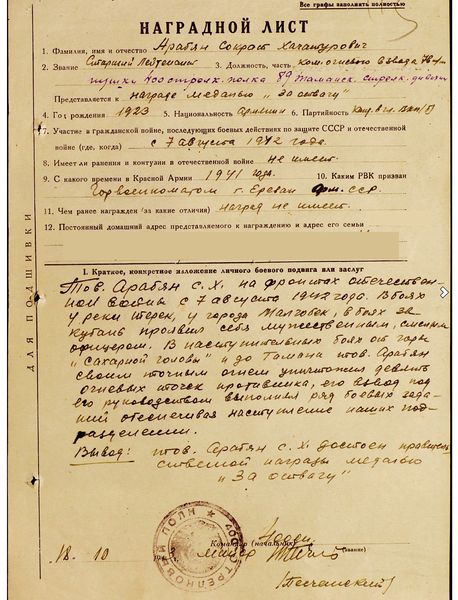 Все графы заполнять полностью
НАГРАДНОЙ ЛИСТ
1. Фамилия, имя и отчество Арабян Сократ Хачатурович
2. Звание Старший Лейтенант 3. Должность, часть ком. огневого взвода 76 м/м
пушки 400 стрелк. полка 89 Таманск. стрелк. дивизии
Представляется к награде медалью "За отвагу"
4. Год рождения 1923 5. Национальность Армянин 6. Партийность канд. в чл. ВКП/б/
7. Участие в гражданской войне, последующих боевых действиях по защите СССР и отечественной
войне (где, когда) с 7 августа 1942 года.
8. Имеет ли ранения и контузии в отечественной войне не имеет.
9. С какого времени в Красной Армии 1941 года. 10. Каким РВК призван
Горвоенкоматом г. Ереван Арм. ССР.
11. Чем ранее награжден (за какие отличия) наград не имеет.
12. Постоянный домашний адрес представляемого к награждению и адрес его семьи
ДЛЯ ПОДШИВКИ
I. Краткое, конкретное изложение личного боевого подвига или заслуг
Тов. Арабян С. Х. на фронтах отечествен-
ной войны с 7 августа 1942 года. В боях
у реки Терек, у города Малгобек, в боях за
Кубань проявил себя мужественным, смелым
офицером. В наступательных боях от горы
"Сахарной головы" и до Тамани тов. Арабян
своим точным огнем уничтожил девять
огневых точек противника, его взвод под
его руководством выполнил ряд боевых зада-
ний обеспечивая наступление наших под-
разделений.
Вывод: тов. Арабян С. Х. достоен правитель
ственной награды медалью
"За отвагу"
Командир (начальник)
18. 10 майор (звание)
/Песчанский/
400 СТРЕЛКОВЫЙ ПОЛК